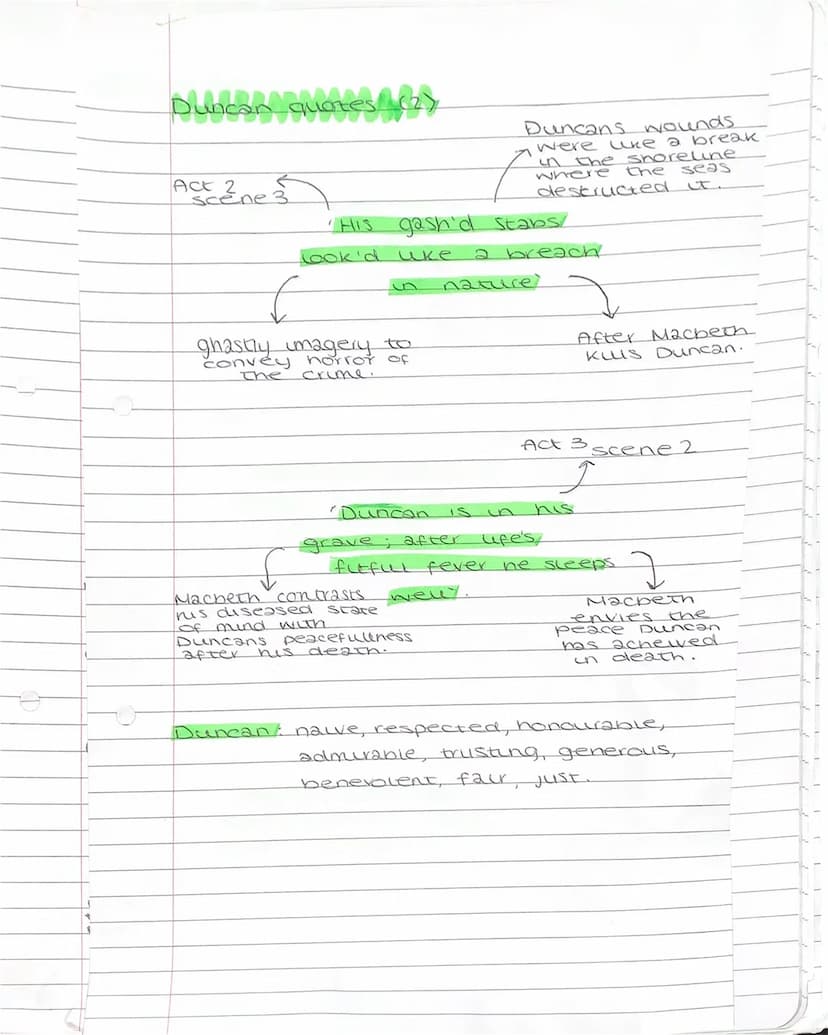 Duncan quotes (2)
Duncans wounds
were like a break
in the shoreline
where the seas
destructed it.
Act 2
scene 3
'His gash'd stabs
look'd like a breach
in nature'
ghastly imagery to
convey horror of
the crime.
After Macbeth
kills Duncan.
Act 3 scene 2
'Duncan is in his
grave; after life's
fitfull fever he sleeps
well'.
Macbeth contrasts
his diseased state
of mind with
Duncans peacefullness
after his death.
Macbeth
envies the
peace Duncan
has acheived
in death.
Duncan: naive, respected, honourable,
admirable, trusting, generous,
benevolent, fair, just.